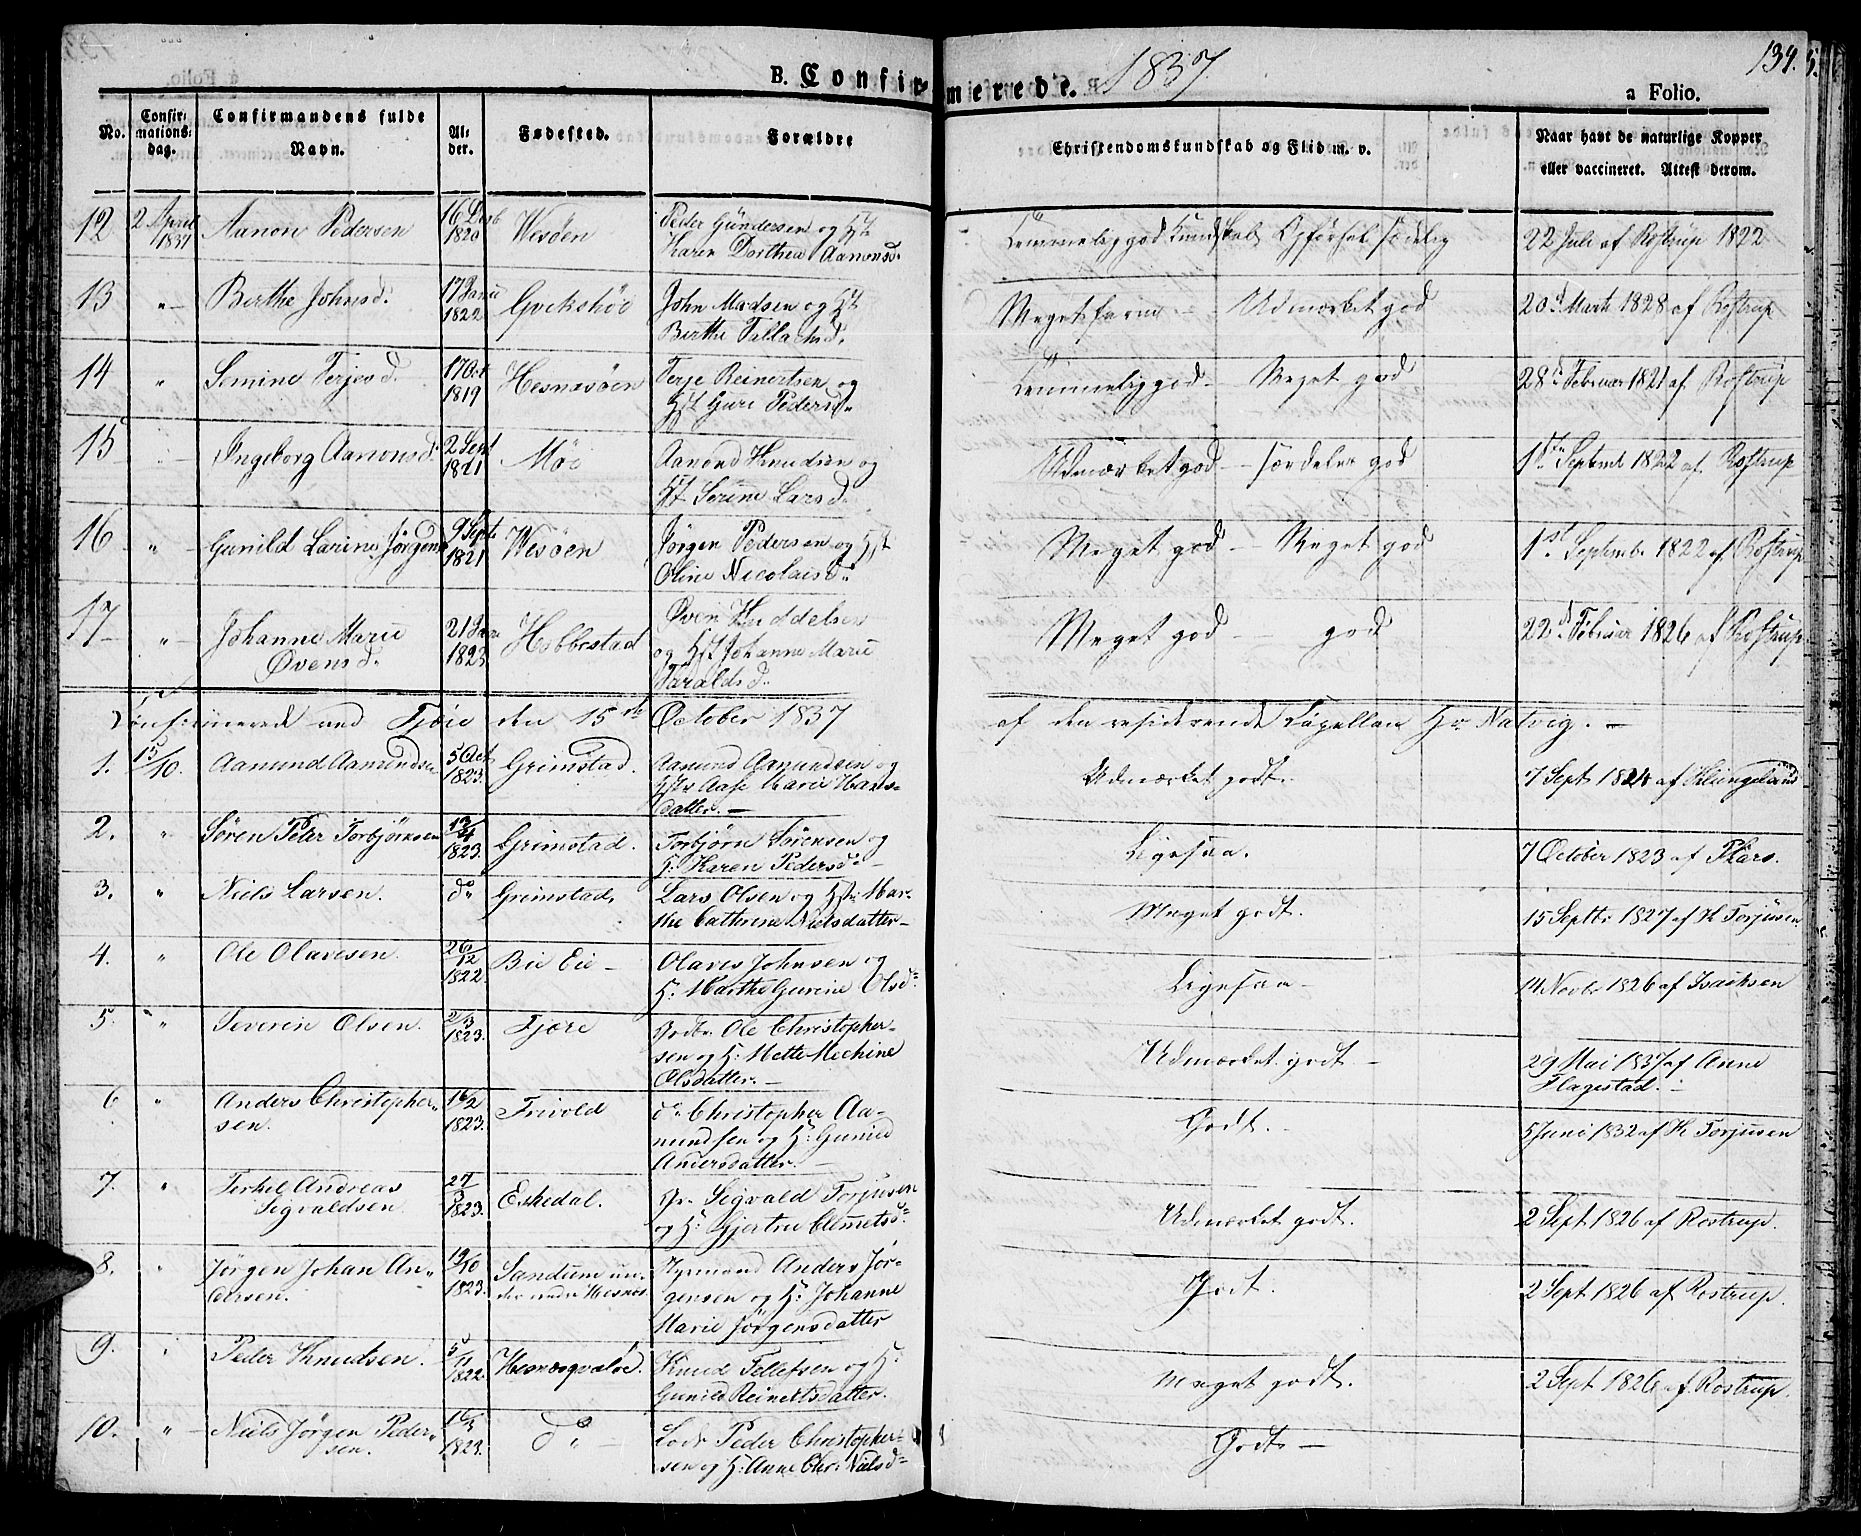 134.
B. Confirmerede. 1837
a Folio.
No. Confirmationsdag. Confirmandens fulde Navn. Alder. Fødested. Forældre Christendomskundskab og Flid m. v. Naar havt de naturlige Kopper eller vaccineret. Attest derom.
12 2 April 1837 Aanon Pedersen 16 Decb 1820 Wesøen Peder Gundersen og Hst
Karen Dorthea Aanonsd. Temmelig god Kundskab Opførsel sædelig 22 Juli af Rostrup 1822
13 " Berthe Johnsd. 17 Janu 1822 John Madsen og Hst
Berthe Tallachsd. Meget – Udmærket god 20d Marts 1828 af Rostrup
14 " Semine Terjesd. 17 Oct 1819 Hesnæsöen Terje Reinertsen og
Hst Guri Pedersd. Temmelig god – Meget god 28d Februar 1821 af Rostrup
15 Ingeborg Aanonsd. 2 Sept 1821 Møe Aanond Knudsen og
Hst Serine Larsd. Udmærket god – særdeles god 1ste Septemb 1822 af Rostrup
16 " Gunild Larine Jørgens 9 Sept 1821 Wesøen Jørgen Pedersen og Hst
Oline Nicolaisd. Meget god – Meget god 1st Septembe 1822 af Rostrup
17 " Johanne Marie
Øvensd. 21 Janu 1823 Hobbestad Øven
og Hst Johanne Marie
Taraldsd. Meget god – god 22d Februar 1826 af Rostrup
Confirmerede ved Fjære den 15de October 1837 af den residerende Capellan Hr Natvig. –
1. 15/10. Aanund Aanundsen 5 Oct 1823. Grimstad. Aanund Aanundsen og
Hst Aase Marie Hans-
datter. – Udmærket godt. 7 Sept 1824 af Klungeland
2. " Søren Peter Torbjørnsen 13/4 1823. Grimstad. Torbjørn Sørensen og
H: Karen Pedersd – Ligesaa. 7 October 1823 af
3. " Niels Larsen. do Grimstad. Lars Olsen og Hst: Mar-
the Cathrine Nielsdatter – Meget godt. 15 Septbr 1827 af K Torjusen
4. " Ole Olavesen. 26/12 1822 Bie Eie – Olaves Johnsen og
H: Marthe Gurine Olsd Ligesaa – 14 Novbr 1826 af Isachsen
5. " Severin Olsen. 2/3 1823. Fjære Ole Christopher-
sen og H: Mette Mechine
Olsdatter. – Udmærket godt – 29 Mai 1837 af Anne
Flagestad.
6 " Anders Christopher-
sen. 16/2 1823. Trivold do Christopher Aa-
nundsen og H: Gunild
Andersdatter. – Godt. – 5 Juni 1832 af K Torjusen
7. " Terkel Andreas
Segvaldsen. 1823. Eskedal. Segvald Torjusen
og H: Gjertru Clemetsd. Udmærket godt. 2 Sept 1826 af Rostrup.
8. " Jørgen Johan An-
dersen. 19/10 1823. Sandum un-
der Hesnes. Anders Jör-
gensen og H: Johanne
Marie Jørgensdatter Godt. 2 Sept 1826 af Rostrup.
9. " Peder Knudsen. 5/11 1822. Knud Tellefsen og H:
Gunild Reinertsdatter. Meget godt. 2 Sept 1826 af Rostrup.
10. " Niels Jørgen Peder-
sen. 1823. do – Peder Christopher-
sen og H: Anne Chr: Nielsd Godt –